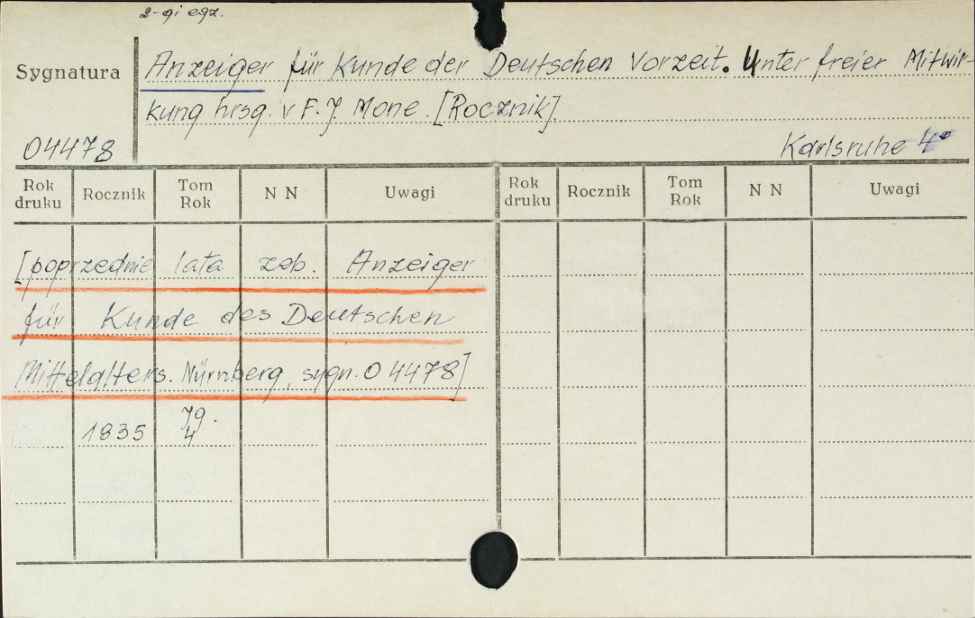 2-gi egz.
Sygnatura
Anzeiger für Kunde der Deutschen Vorzeit. Unter freier Mitwir-
kung hrsg. v F. J. Mone. [Rocznik].
04478
Karlsruhe 4°
Rok druku Rocznik Tom Rok N N Uwagi Rok druku Rocznik Tom Rok N N Uwagi
[poprzednie lata zob. Anzeiger
für Kunde des Deutschen
Mittelalters. Nürnberg, sygn. 04478]
1835 Jg. 4